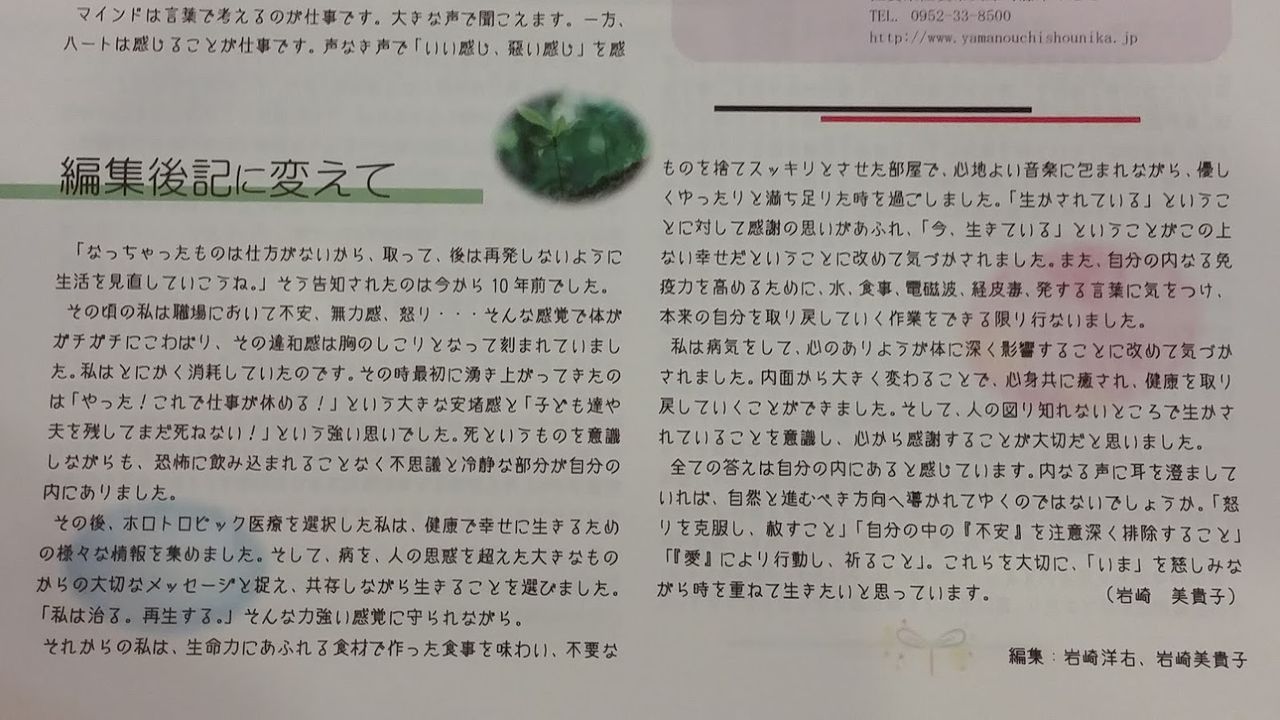 マインドは言葉で考えるのが仕事です。大きな声で聞こえます。一方、
ハートは感じることが仕事です。声なき声で「いい感じ、悪い感じ」を感
TEL. 0952-33-8500
http://www.yamanouchishounika.jp
編集後記に変えて
「なっちゃったものは仕方がないから、取って、後は再発しないように
生活を見直していこうね。」そう告知されたのは今から10年前でした。
その頃の私は職場において不安、無力感、怒り・・・そんな感覚で体が
ガチガチにこわばり、その違和感は胸のしこりとなって刻まれていまし
た。私はとにかく消耗していたのです。その時最初に湧き上がってきたの
は「やった！これで仕事が休める！」という大きな安堵感と「子ども達や
夫を残してまだ死ねない！」という強い思いでした。死というものを意識
しながらも、恐怖に飲み込まれることなく不思議と冷静な部分が自分の
内にありました。
その後、ホロトロピック医療を選択した私は、健康で幸せに生きるため
の様々な情報を集めました。そして、病を、人の思惑を超えた大きなもの
からの大切なメッセージと捉え、共存しながら生きることを選びました。
「私は治る。再生する。」そんな力強い感覚に守られながら。
それからの私は、生命力にあふれる食材で作った食事を味わい、不要な
ものを捨てスッキリとさせた部屋で、心地よい音楽に包まれながら、優し
くゆったりと満ち足りた時を過ごしました。「生かされている」というこ
とに対して感謝の思いがあふれ、「今、生きている」ということがこの上
ない幸せだということに改めて気づかされました。また、自分の内なる免
疫力を高めるために、水、食事、電磁波、経皮毒、発する言葉に気をつけ、
本来の自分を取り戻していく作業をできる限り行ないました。
私は病気をして、心のありようが体に深く影響することに改めて気づか
されました。内面から大きく変わることで、心身共に癒され、健康を取り
戻していくことができました。そして、人の図り知れないところで生かさ
れていることを意識し、心から感謝することが大切だと思いました。
全ての答えは自分の内にあると感じています。内なる声に耳を澄まして
いれば、自然と進むべき方向へ導かれてゆくのではないでしょうか。「怒
りを克服し、赦すこと」「自分の中の『不安』を注意深く排除すること」
「『愛』により行動し、祈ること」。これらを大切に、「いま」を慈しみな
がら時を重ねて生きたいと思っています。 （岩崎 美貴子）
編集：岩崎洋右、岩崎美貴子